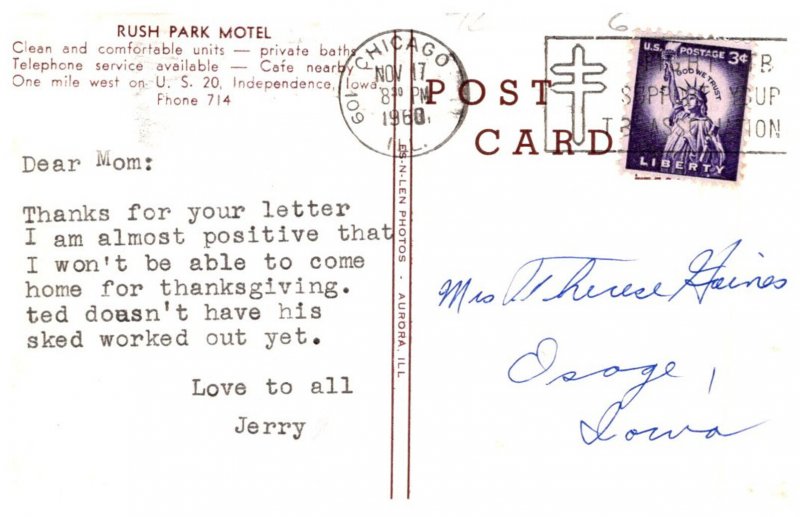 RUSH PARK MOTEL
Clean and comfortable units — private baths
Telephone service available — Cafe nearby
One mile west on U. S. 20, Independence, Iowa
Phone 714
CHICAGO
NOV 17
8 30 PM
1960
ILL.
POST
CARD
U.S. POSTAGE 3¢
IN GOD WE TRUST
LIBERTY
Dear Mom:
Thanks for your letter
I am almost positive that
I won't be able to come
home for thanksgiving.
ted doasn't have his
sked worked out yet.
Love to all
Jerry
ES-N-LEN PHOTOS • AURORA, ILL
Mrs Therese Haines
Osage,
Iowa